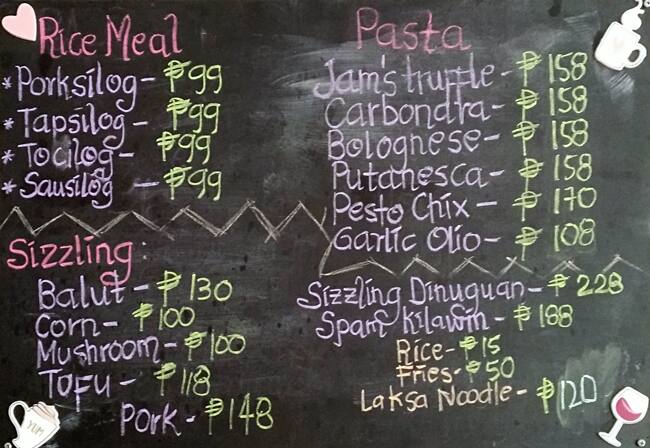 Rice Meal
*Porksilog - ₱99
*Tapsilog - ₱99
*Tocilog - ₱99
*Sausilog - ₱99
Sizzling:
Balut - ₱130
Corn - ₱100
Mushroom - ₱100
Tofu - ₱118
Pork - ₱148
YUM
Pasta
Jam's truffle - ₱158
Carbondra - ₱158
Bolognese - ₱158
Putanesca - ₱158
Pesto Chix - ₱170
Garlic Olio - ₱108
Sizzling Dinuguan - ₱228
Spam Kilawin - ₱188
Rice - ₱15
Fries - ₱50
Laksa Noodle - ₱120